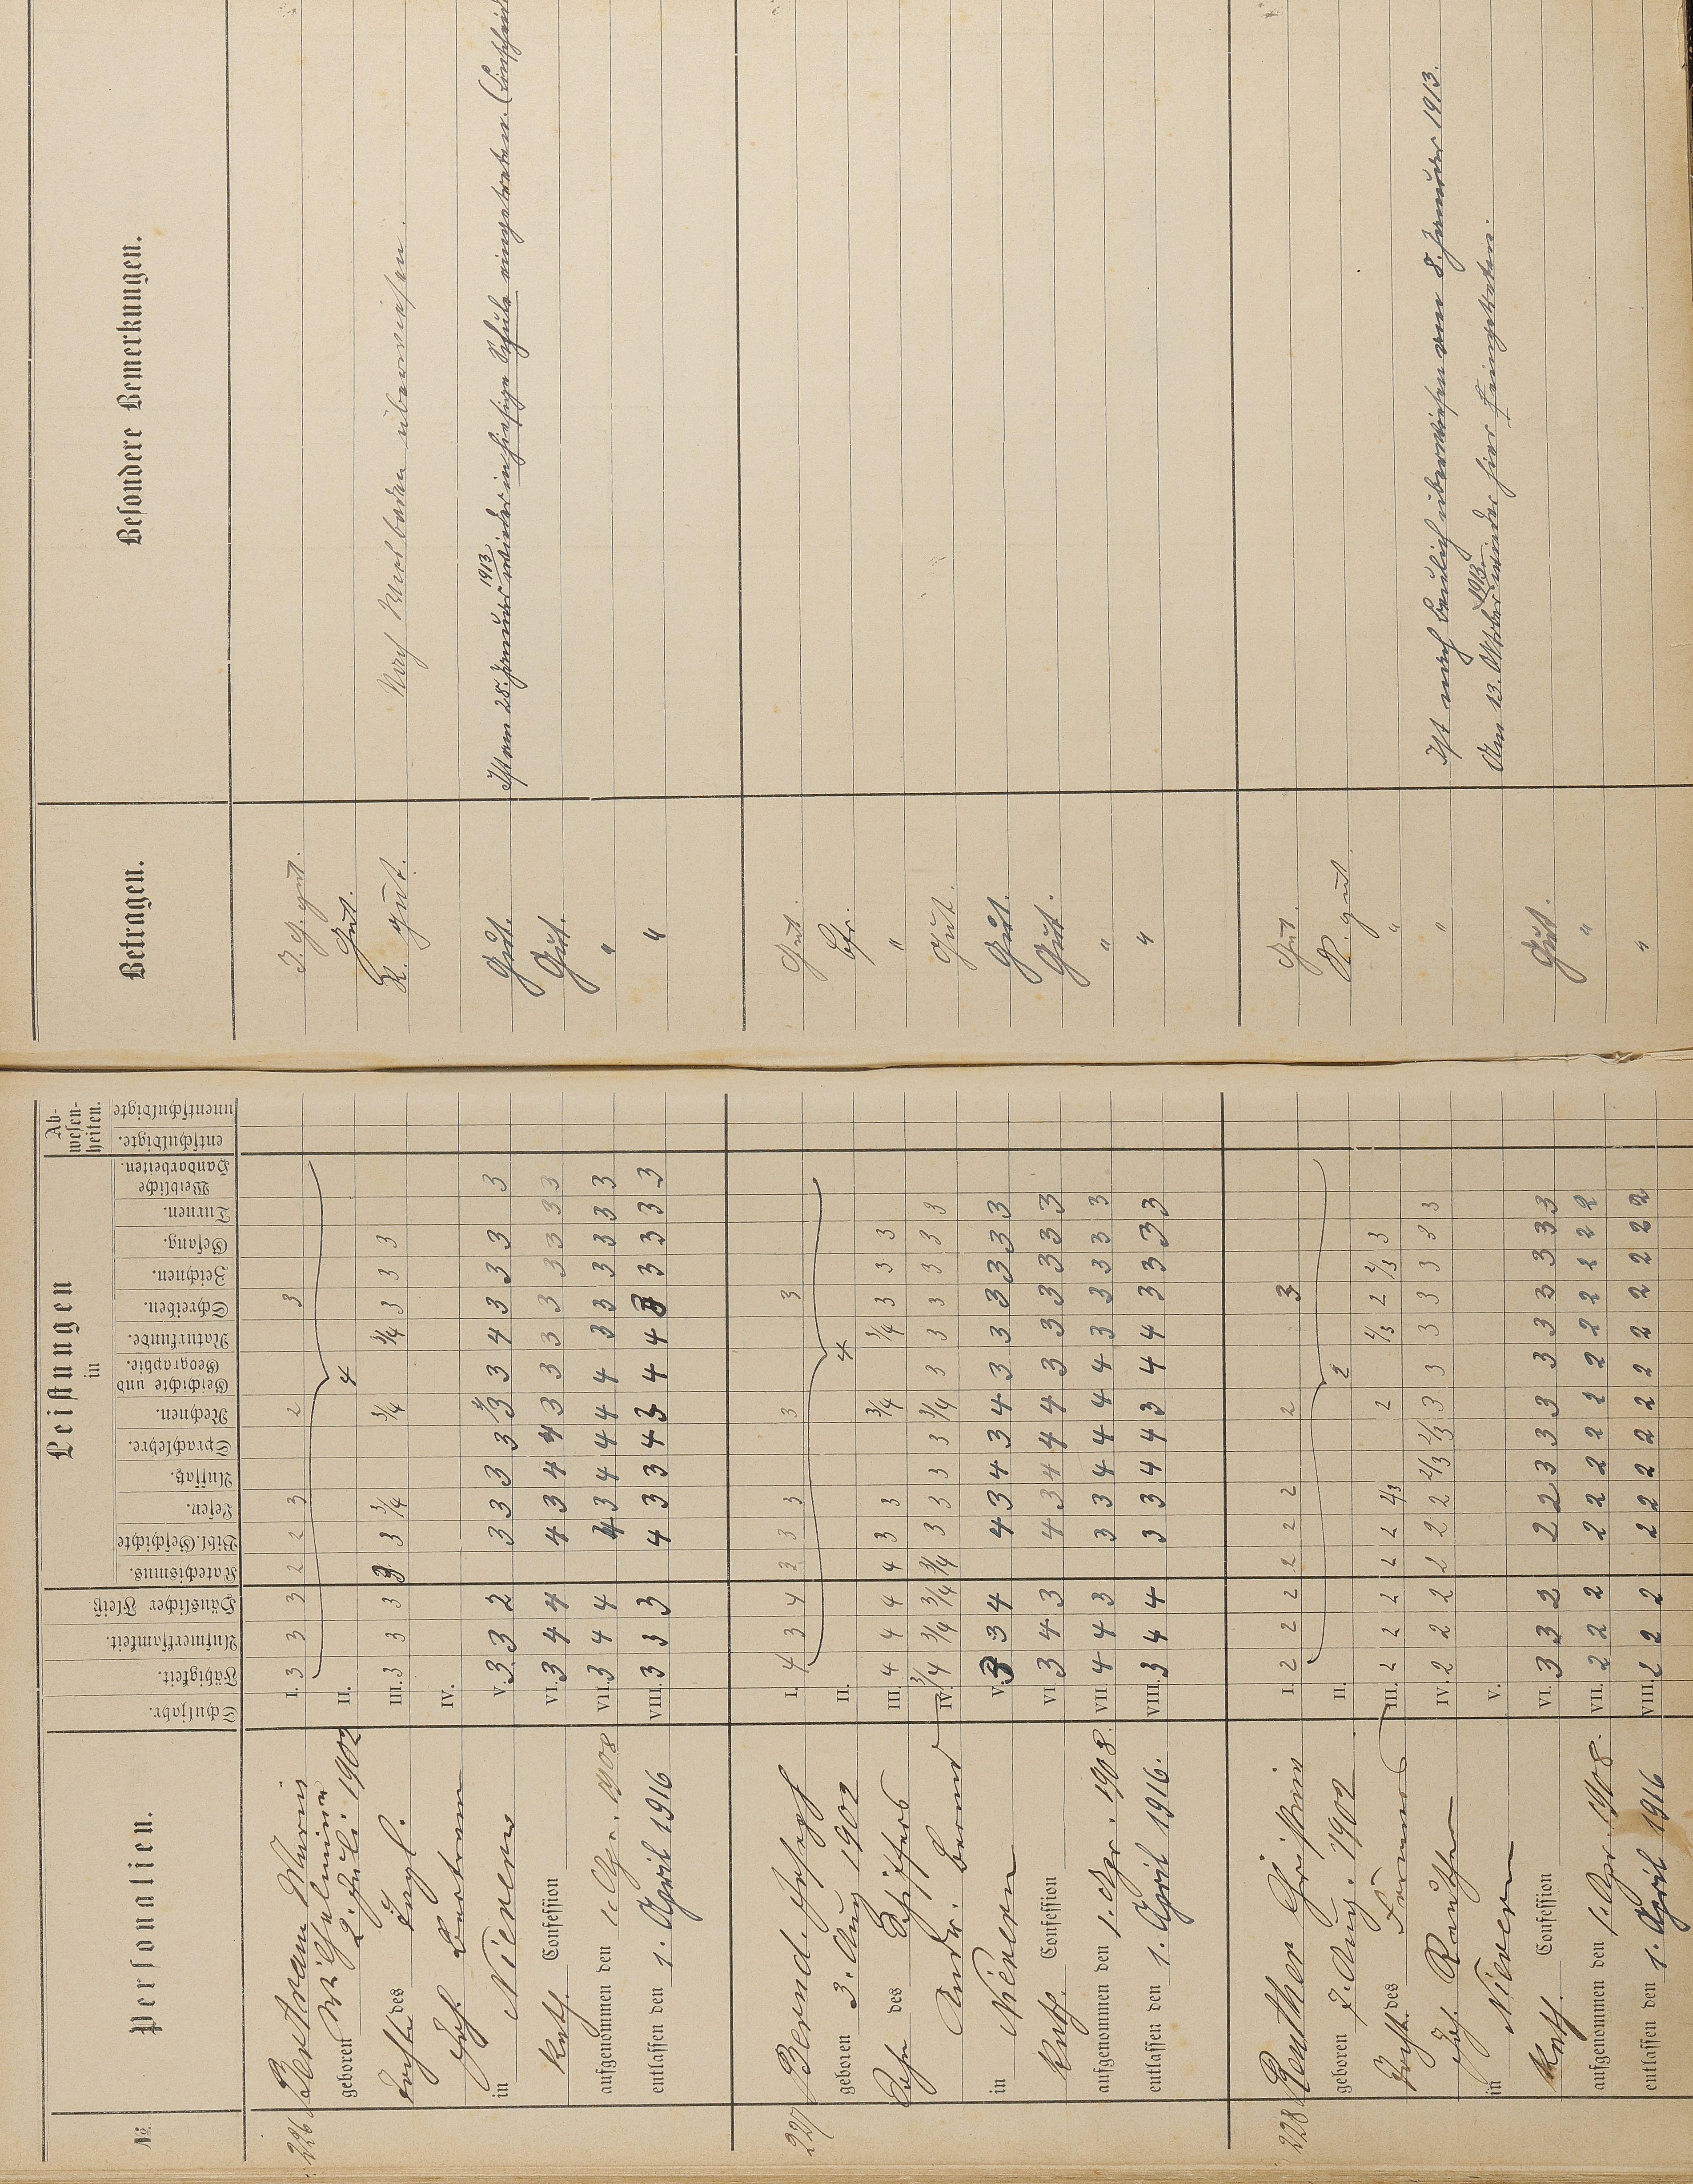 №
Personalien.
Schuljahr.
Fähigkeit.
Aufmerksamkeit.
Häuslicher Fleiß
Leistungen
in
Katechismus.
Bibl. Geschichte
Lesen.
Aufsatz.
Sprachlehre.
Rechnen.
Geschichte und
Geographie.
Naturkunde.
Schreiben.
Zeichnen.
Gesang.
Turnen.
Weibliche
Handarbeiten.
Ab-
wesen-
heiten.
entschuldigte.
unentschuldigte
Betragen.
Besondere Bemerkungen.
226 Bertram Maria
Wilhelmine
geboren 2. Juli 1902
Tochter des Tagl.
Joh. Bertram
in Nievern
Kath. Confession
aufgenommen den 1. Apr. 1908
entlassen den 1. April 1916
I. 3 3 3 2 2 3 2 3
II. 4
III. 3 3 3 3 3 3/4 3/4 3/4 3 3 3
IV.
V. 3 3 2 3 3 3 3 3 3 4 3 3 3 3
VI. 3 4 4 4 3 4 4 3 3 3 3 3 3 3 3
VII. 3 4 4 4 3 4 4 4 4 3 3 3 3 3 3
VIII. 3 3 3 4 3 3 4 3 4 4 3 3 3 3 3
gut.
Gut.
gut.
Gut.
Gut.
"
"
Nach Wiesbaden überwiesen.
Ist am 28. Januar 1913 wieder in hiesige Schule eingetreten.
227 Bernd. Joseph
geboren 3. Aug 1902
Sohn des Schiffers
Andr. Bernd
in Nievern
Kath. Confession
aufgenommen den 1. Apr. 1908.
entlassen den 1. April 1916.
I. 4 3 4 3 3 3 3 3
II. 4
III. 4 4 4 4 3 3 3/4 3/4 3 3 3
IV. 3/4 3/4 3/4 3/4 3 3 3 3 3/4 3 3 3 3 3 3
V. 3 3 4 4 3 4 3 4 3 3 3 3 3 3
VI. 3 4 3 4 3 4 4 4 3 3 3 3 3 3
VII 4 4 3 3 3 4 4 4 4 3 3 3 3 3
VIII. 3 4 4 3 3 4 4 3 4 4 3 3 3 3
Gut.
"
Gut.
Gut.
Gut.
"
"
228 Beuther Christine
geboren 7. Aug. 1902
Tochter des
Joh.
in Nievern
Kath. Confession
aufgenommen den 1. Apr. 1908.
entlassen den 1. April 1916
I. 2 2 2 2 2 2 2 3
II. 2
III. 2 2 2 2 2 2/3 2 2/3 2 2/3 3
IV. 2 2 2 2 2 2 2/3 2/3 3 3 3 3 3 3 3
V.
VI. 3 3 2 2 2 3 3 3 3 3 3 3 3 3
VII. 2 2 2 2 2 2 2 2 2 2 2 2 2 2
VIII. 2 2 2 2 2 2 2 2 2 2 2 2 2 2
Gut.
R. gut
"
"
Gut.
"
"
Ist nach überwiesen am 8. Januar 1913.
Am 13. Oktober 1913 wieder hier eingetreten.